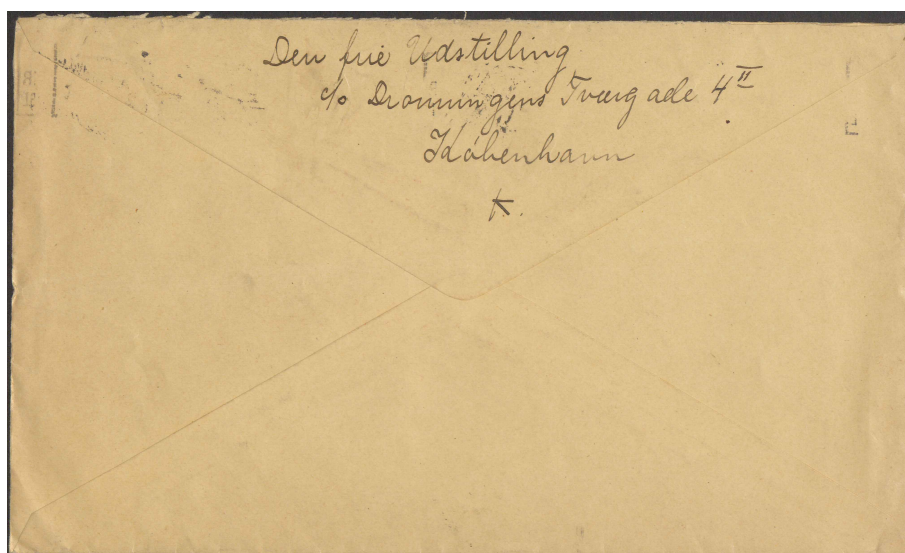 Den frie Udstilling
c/o Dronningens Tværgade 4 II
København
K.